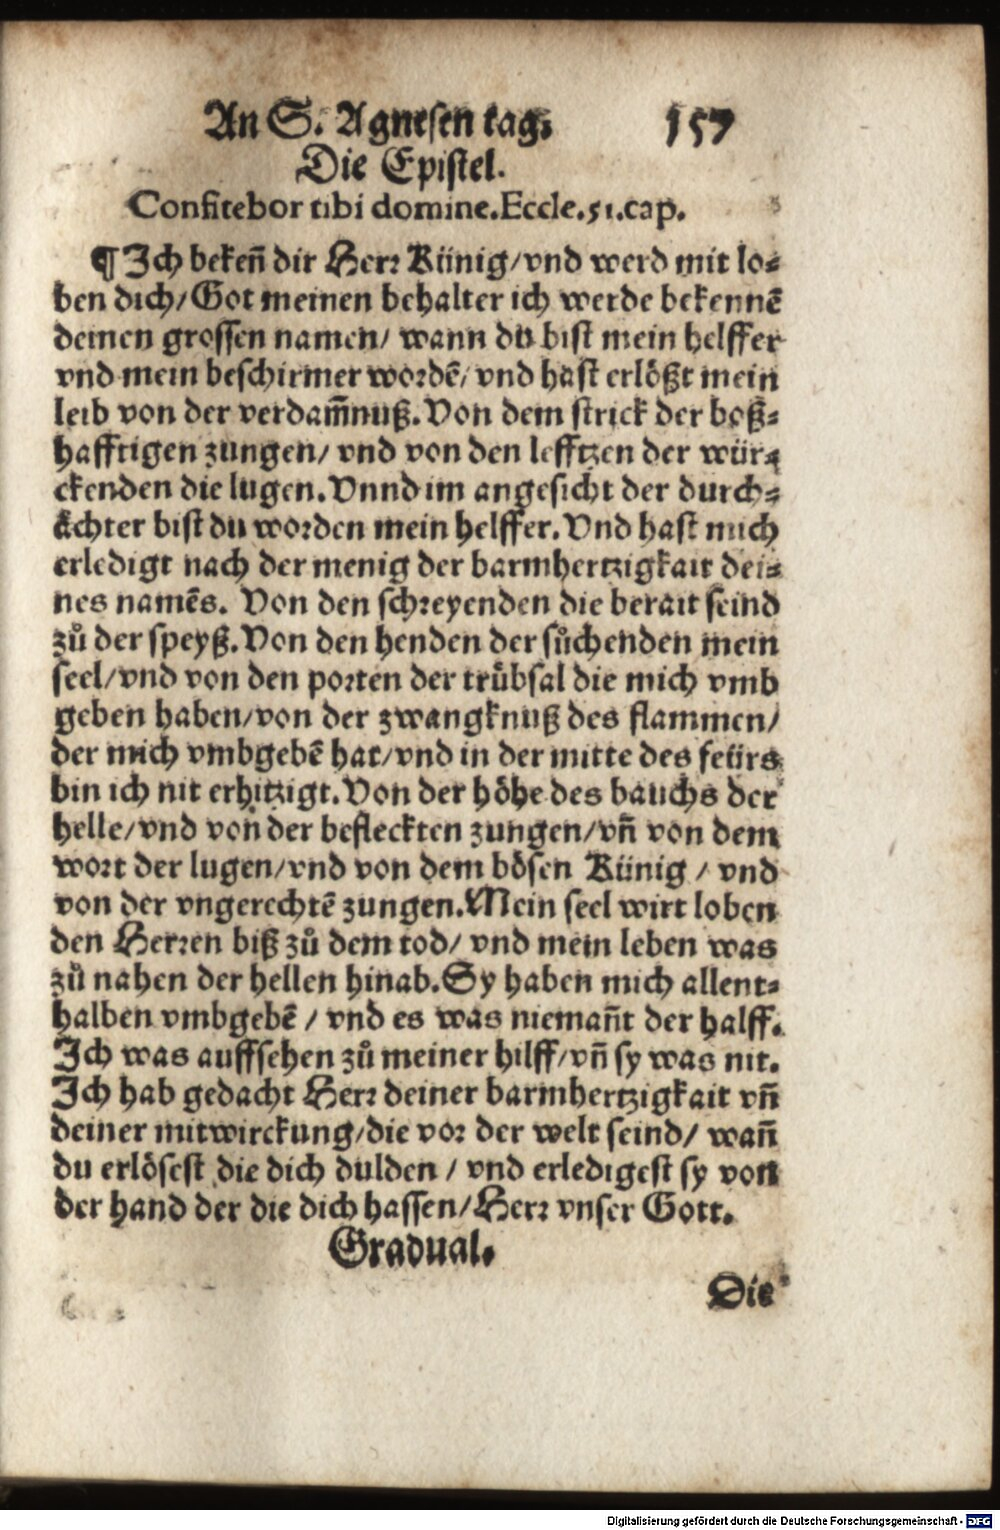 An S. Agnesen tag. 157
Die Epistel.
Confitebor tibi domine. Eccle. 51. cap.
¶ Ich bekeñ dir Herr Künig/vnd werd mit lo⸗
ben dich/Got meinen behalter ich werde bekennē
deinen grossen namen/ wann du bist mein helffer
vnd mein beschirmer wordē/ vnd hast erlößt mein
leib von der verdam̃nuß. Von dem strick der boß⸗
hafftigen zungen/ vnd von den lefftzen der wür⸗
ckenden die lugen. Vnnd im angesicht der durch⸗
ächter bist du worden mein helffer. Vnd hast mich
erledigt nach der menig der barmhertzigkait dei⸗
nes namēs. Von den schreyenden die berait seind
zů der speyß. Von den henden der sůchenden mein
seel/vnd von den porten der trübsal die mich vmb
geben haben/von der zwangknuß des flammen/
der mich vmbgebē hat/vnd in der mitte des feürs
bin ich nit erhitzigt. Von der höhe des bauchs der
helle/vnd von der befleckten zungen/vñ von dem
wort der lugen/vnd von dem bösen Künig / vnd
von der vngerechtē zungen. Mein seel wirt loben
den Herren biß zů dem tod/ vnd mein leben was
zů nahen der hellen hinab. Sy haben mich allent⸗
halben vmbgebē / vnd es was niemañt der halff.
Ich was auffsehen zů meiner hilff/vñ sy was nit.
Ich hab gedacht Herr deiner barmhertzigkait vñ
deiner mitwirckung/die vor der welt seind/ wañ
du erlösest die dich dulden / vnd erledigest sy von
der hand der die dich hassen/Herr vnser Gott.
Gradual.
Die
Digitalisierung gefördert durch die Deutsche Forschungsgemeinschaft - DFG